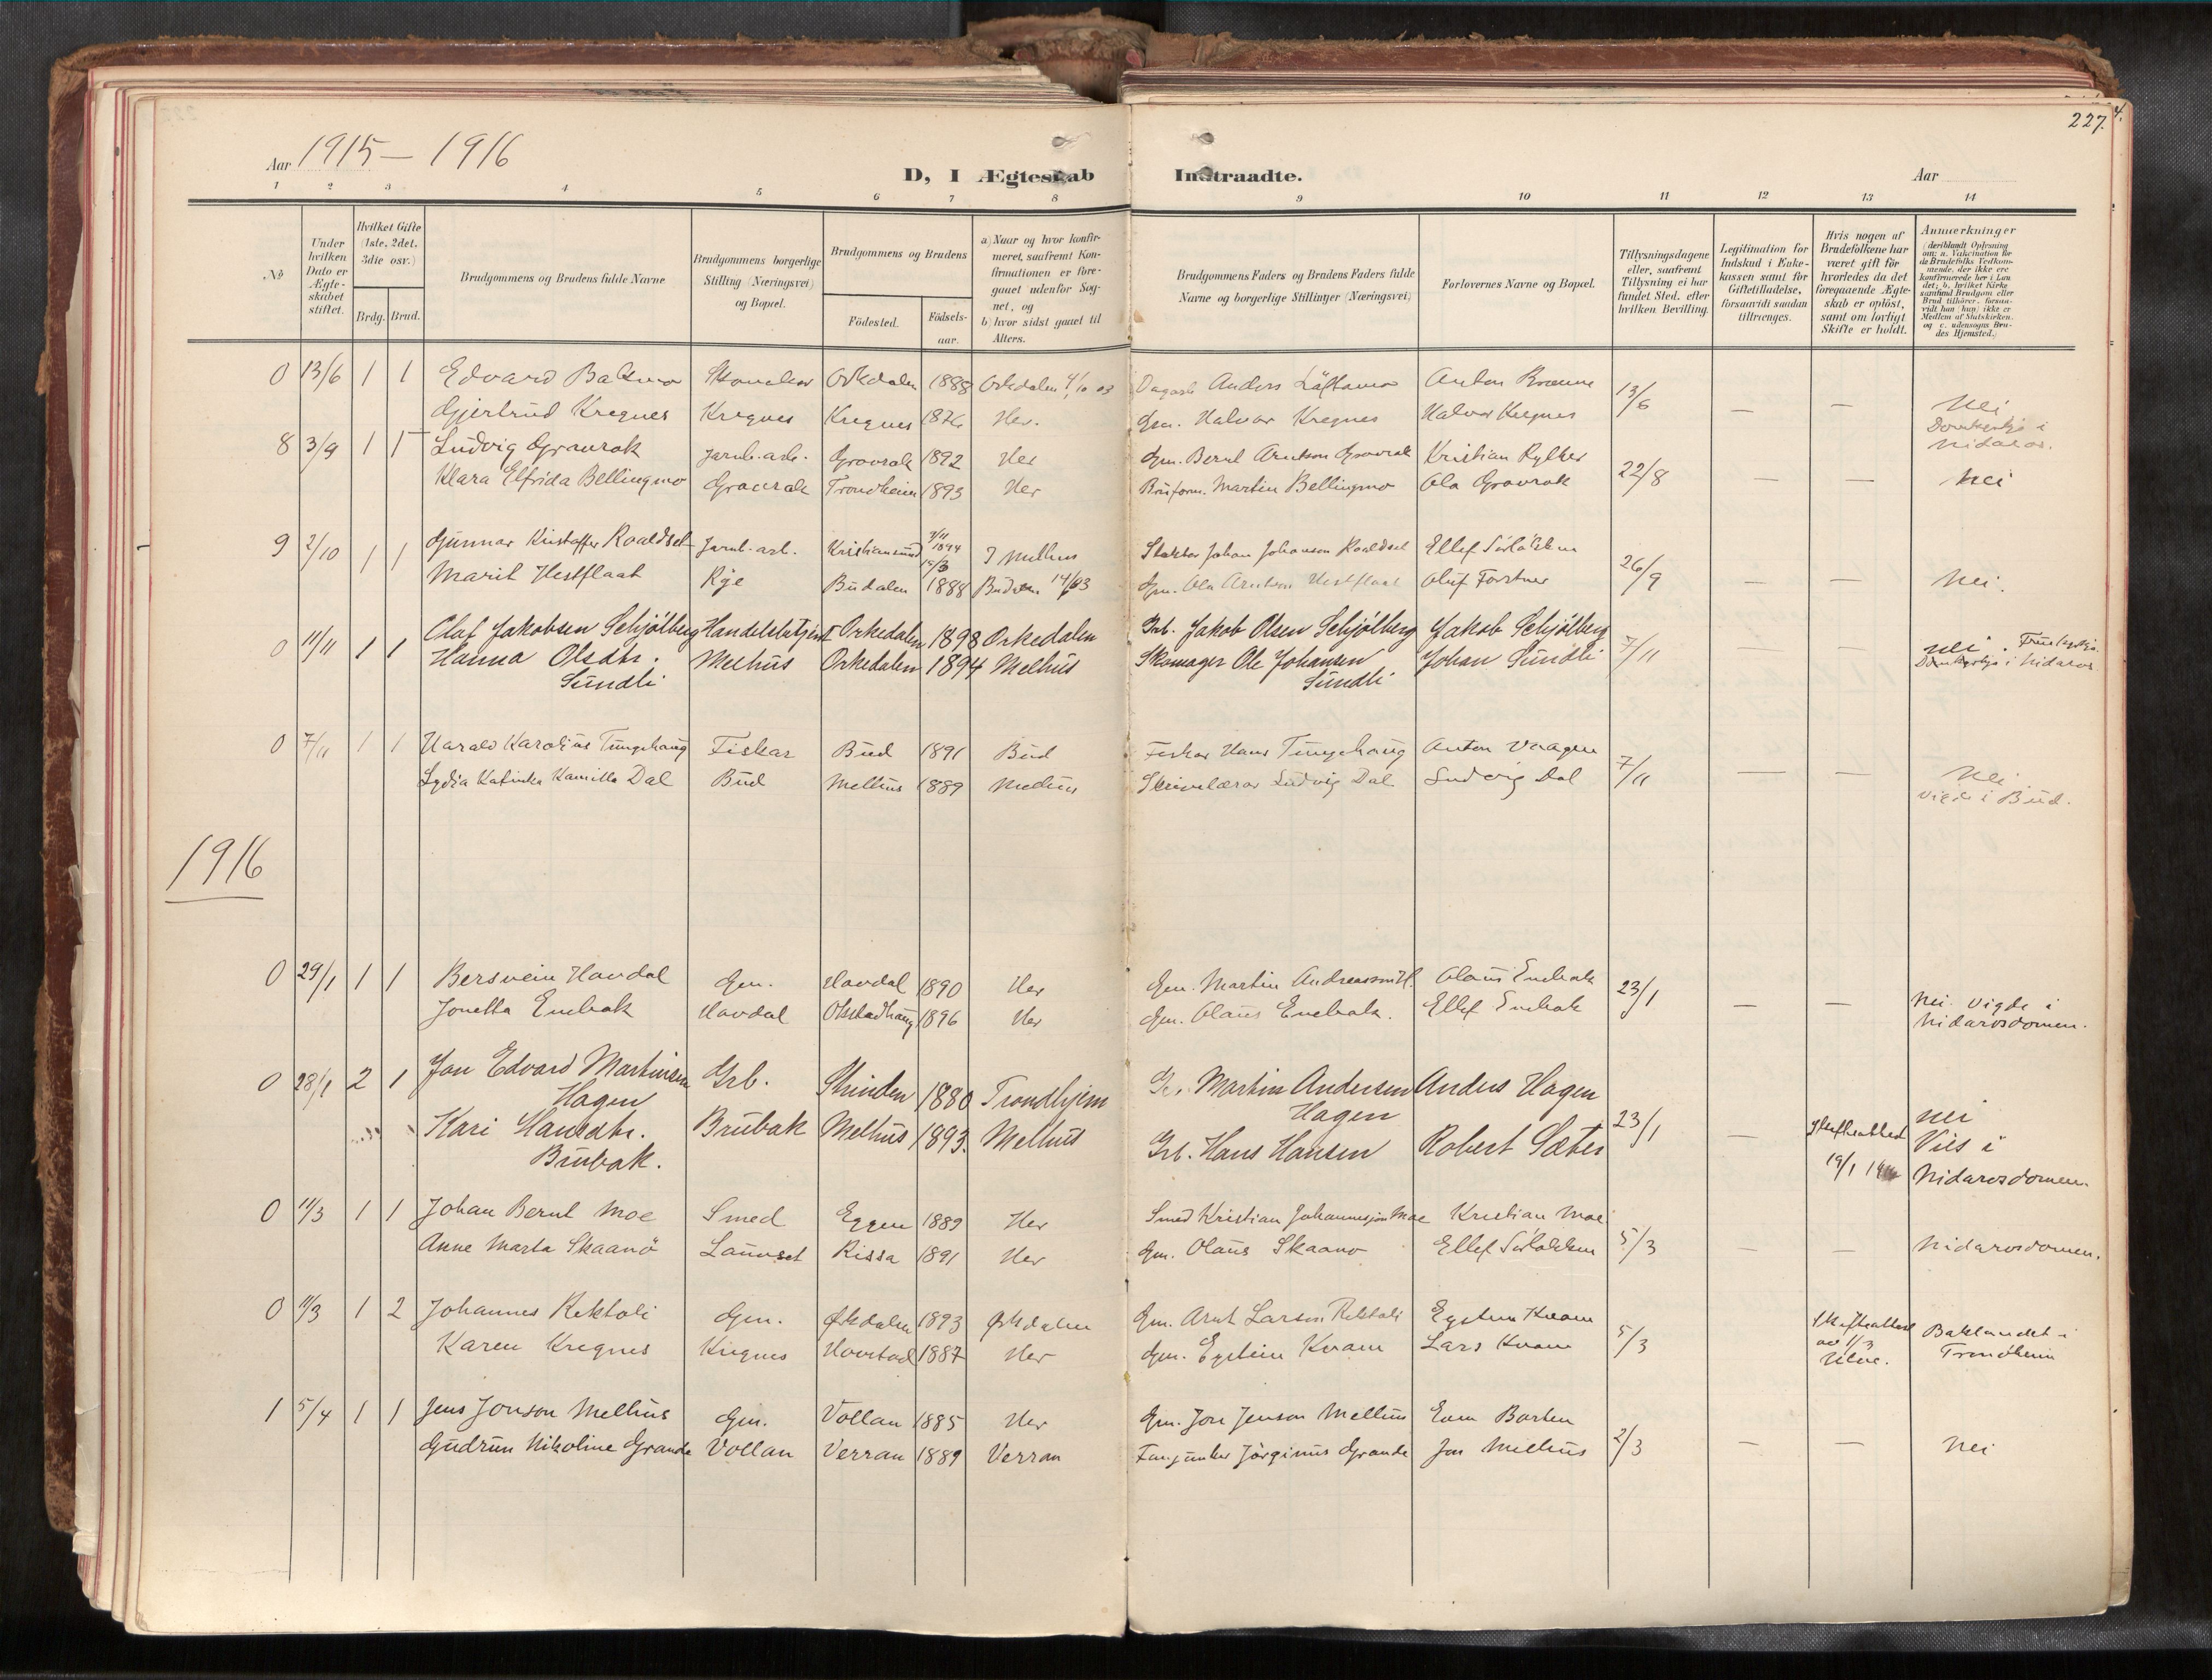 227.
Aar 1915 – 1916
D, I Ægteskab Indtraadte.
Aar
1 2 3 4 5 6 7 8 9 10 11 12 13 14
No.
Under hvilken Dato er Ægteskabet stiftet.
Hvilket Gifte (1ste, 2det, 3die osv.)
Brdg. Brud.
Brudgommens og Brudens fulde Navne
Brudgommens borgerlige Stilling (Næringsvei) og Bopæl.
Brudgommens og Brudens
Födested.
Födselsaar.
a) Naar og hvor konfirmeret, saafremt Konfirmationen er foregaaet udenfor Sognet, og
b) hvor sidst gaaet til Alters.
Brudgommens Faders og Brudens Faders fulde Navne og borgerlige Stillinger (Næringsvei)
Forlovernes Navne og Bopæl.
Tillysningsdagene eller, saafremt Tillysning ei har fundet Sted, efter hvilken Bevilling.
Legitimation for Indskud i Enkekassen samt for Giftetilladelse, forsaavidt saadan tiltrænges.
Hvis nogen af Brudefolkene har været gift før hvorledes da det foregaaende Ægteskab er oplöst, samt om lovligt Skifte er holdt.
Anmerkninger (deriblandt Oplysning om: a. Vakcination for de Brudefolks Vedkommende, der ikke ere konfirmerede her i Landet; b. hvilket Kirkesamfund Brudgom eller Brud tilhörer, forsaavidt han (hun) ikke er Medlem af Statskirken, og c. udensogns Brudes Hjemsted.)
0 13/6 1 1 Edvard Orkdalen 1888 Orkdalen 4/10 03 Anders Anton 13/6
Gjertrud Kregnes Kregnes Kregnes 1876 Her. Gm. Halvor Kregnes Halvor Kregnes — — Nei
Domkyrkja i Nidaros.
8 3/9 1 1 Ludvig Gravrok Jarnb.arb. Gravrok 1892 Her Gm. Bernt Arntson Gravrok Kristian 22/8
Klara Elfrida Bellingmo Gravrok Trondheim 1893 Her Martin Bellingmo Ola Gravrok — — Nei
9 2/10 1 1 Gunnar Kristoffer Roaldset Jarnb.arb. Kristiansund 7/11 1894 I Melhus Johan Johansen Roaldset Ellef 26/9
Marit Hestflaat Rye Budalen 15/3 1888 Budalen 14/6 03 Gm. Ola Arntson Hestflaat Oluf Forstner — — Nei.
0 11/11 1 1 Olaf Jakobsen Schjölberg Handelsbetjent Orkedalen 1898 Orkedalen Grb. Jakob Olsen Schjölberg Jakob Schjölberg 7/11
Hanna Olsdtr. Melhus Orkedalen 1894 Melhus Skomager Ole Johansen Johan Sundli — — nei.
Sundli Sundli Domkyrkja i Nidaros
0 7/11 1 1 Harald Karolius Tungehaug Fiskar Bud 1891 Bud Fiskar Hans Tungehaug Anton Vaagen 7/11
Lydia Katinka Kamilla Dal Bud Melhus 1889 Melhus Ludvig Dal Ludvig Dal — — Nei
Vigde i Bud.
1916
0 29/1 1 1 Bersvein Havdal Gm. Havdal 1890 Her Gm. Martin Andreasson H. Olaus Enebak 23/1
Jonetta Enebak Havdal Olstadhaug 1896 Her Gm. Olaus Enebak. Ellef Enebak — — Nei. Vigde i
Nidarosdomen.
0 28/1 2 1 Jon Edvard Martinsen Grb. Strinden 1880 Trondhjem Martin Andersen Anders Hagen
Hagen Hagen 23/1
Kari Hansdtr. Brubak Melhus 1893. Melhus Grb. Hans Hansen Robert Sæter — Skifteattest nei
Brubak. 19/1 Vies i
Nidarosdomen.
0 11/3 1 1 Johan Bernt Moe Smed Eggen 1889 Her Smed Kristian Johannesson Moe Kristian Moe 5/3
Anne Marta Skaanö Rissa 1891 Her Gm. Olaus Skaanö Ellef — — Nidarosdomen.
0 11/3 1 2 Johannes Rektoli Gm. Orkdalen 1893 Orkdalen Gm. Arnt Larson Rektoli Eystein Kvam 5/3 Skifteattest
Karen Kregnes Kregnes Hovstad 1887 Her Gm. Eystein Kvam Lars Kvam av 1/3
Baklandet i
Trondheim
1 5/4 1 1 Jens Jonson Melhus Gm. Vollan 1885 Her Gm. Jon Jenson Melhus Even Borten 2/3
Gudrun Nikoline Grande Vollan Verran 1889 Verran Jörginus Grande Jon Melhus — — Nei